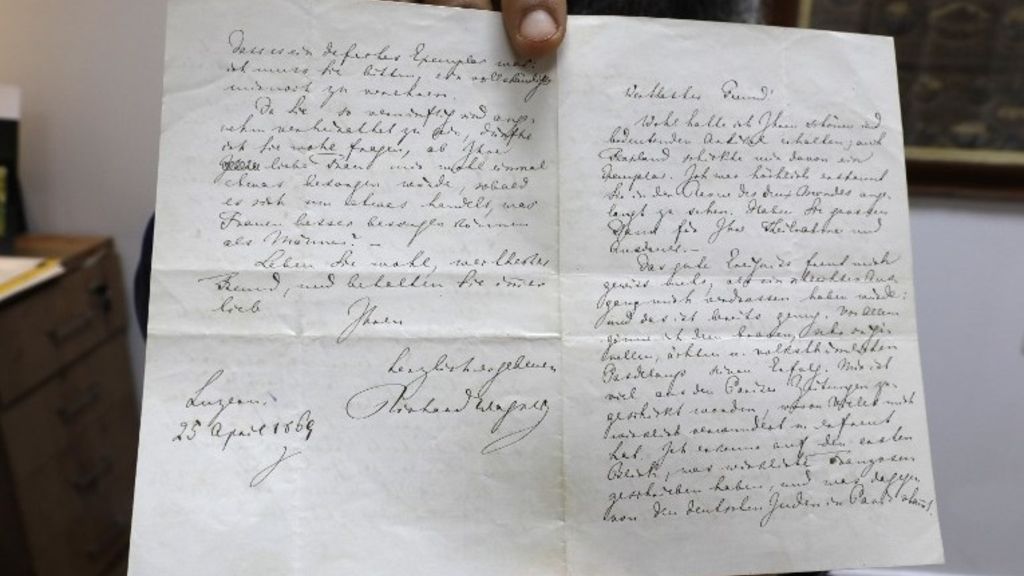 Dass es ein defectes Exemplar war:
ich muss Sie bitten, ein vollständiges
mir noch zu verehren.
Da Sie so vernünftig und ange-
nehm verheirathet zu sein, dürfte
ich Sie wohl fragen, ob Ihre
liebe Frau mir wohl einmal
etwas besorgen würde, sobald
es sich um etwas handelt, was
Frauen besser besorgen können
als Männer? –
Leben Sie wohl, werthester
Freund, und behalten Sie immer
lieb
Ihren
herzlich ergebenen
Richard Wagner
Luzern.
25 April 1869
Werthester Freund!
Wohl hatte ich Ihren schönen und
bedeutenden Artikel erhalten; auch
schickte mir davon ein
Exemplar. Ich war höchlich erstaunt
Sie in der Revue des deux Mondes ange-
langt zu sehen. Haben Sie grossen
Dank für Ihre Theilnahme und
Ausdauer. –
Das gute Ereigniss freut mich
gewiss mehr, als ein schlechter Aus-
gang mich verdrossen haben würde:
und das ist bereits genug. Vor Allem
gönne ich dem braven,
ächten u. volksthümlichen
Pasdeloup seinen Erfolg. Mir ist
viel aus den Pariser Zeitungen zu-
geschickt worden, wovon Vieles mich
wirklich verwundert u. erfreut
hat. Ich erkenne auf den ersten
Blick, was wirkliche Franzosen
geschrieben haben, und was dagegen
von den deutschen Juden in Paris